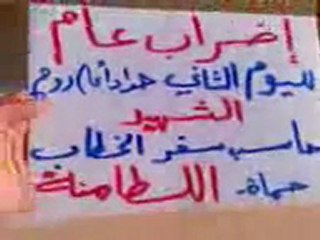 إضراب عام
لليوم الثاني حداداً روح
الشهيد
سفر الخطاب
حماة- اللطامنة